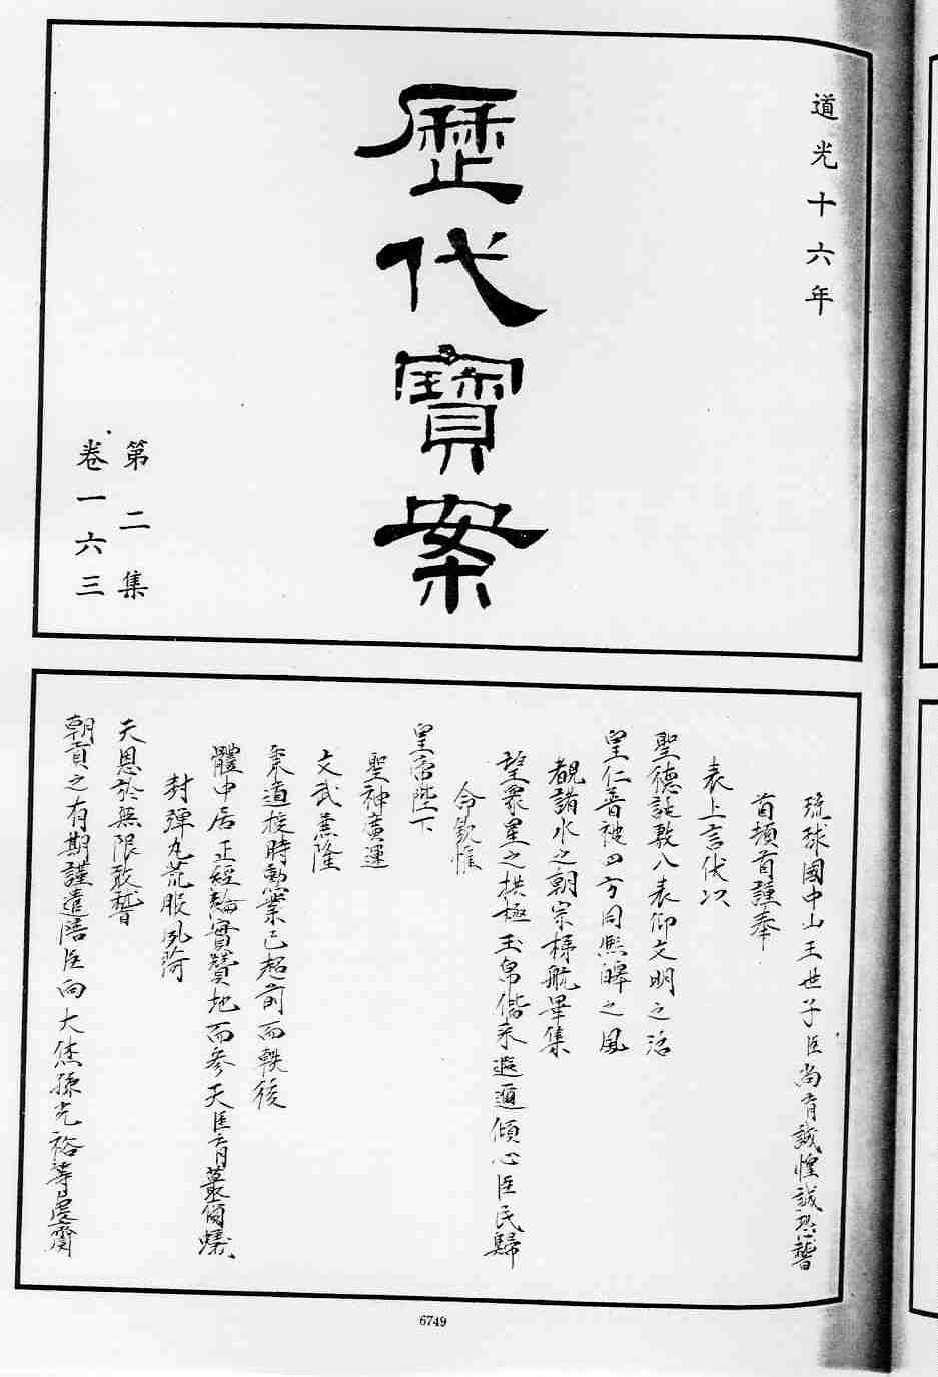 道光十六年
歷代寶案
第二集
卷一六三
琉球國中山王世子臣尚育誠惶誠恐稽
首頓首謹奉
表上言伏以
聖德誕敷八表仰文明之治
皇仁普被四方同熙皞之風
覩諸水之朝宗梯航畢集
望眾星之拱極玉帛偕來遐邇傾心臣民歸
命欽惟
皇帝陛下
聖神廣運
文武兼隆
乘道揆時勳業已超前而軼後
體中居正經綸實贊地而參天臣育叢爾蟻
封彈丸荒服夙荷
天恩於無限敢稽
朝貢之有期謹遣陪臣向大烋孫光裕等虔齎
6749